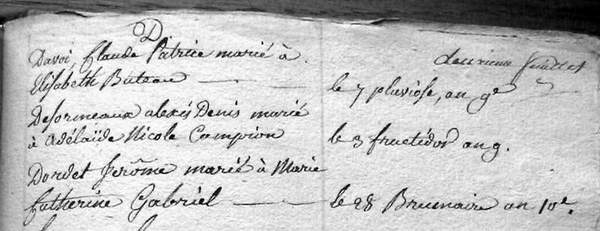 D.
Davoi, Claude Patrice marié à
deuxieme feuillet
Elisabeth Buteau — le 7 pluviose, an 9e
Desormeaux alexis Denis marié
à Adélaïde Nicole Campion le 3 fructidor an 9.
Dordet Jerôme marié à Marie
Catherine Gabriel — le 28 Brumaire an 10e.